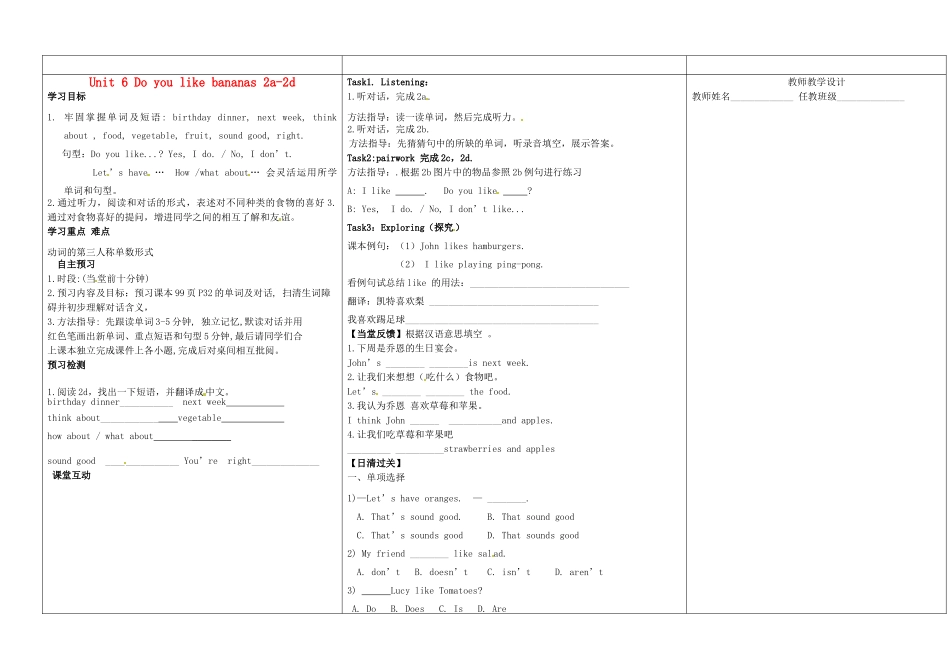 Unit 6 Do you like bananas 2a-2d
学习目标
1. 牢固掌握单词及短语: birthday dinner, next week, think
about , food, vegetable, fruit, sound good, right.
句型:Do you like...? Yes, I do. / No, I don’t.
Let’s have … How /what about… 会灵活运用所学
单词和句型。
2.通过听力，阅读和对话的形式，表述对不同种类的食物的喜好 3.
通过对食物喜好的提问，增进同学之间的相互了解和友谊。
学习重点 难点
动词的第三人称单数形式
自主预习
1.时段:(当堂前十分钟)
2.预习内容及目标：预习课本 99 页 P32 的单词及对话, 扫清生词障
碍并初步理解对话含义。
3.方法指导: 先跟读单词 3-5 分钟, 独立记忆,默读对话并用
红色笔画出新单词、重点短语和句型 5 分钟,最后请同学们合
上课本独立完成课件上各小题,完成后对桌间相互批阅。
预习检测
1.阅读 2d，找出一下短语，并翻译成中文。
birthday dinner___________ next week____________
think about________________vegetable_____________
how about / what about________________
sound good _______________ You’re right______________
课堂互动
Task1. Listening:
1.听对话，完成 2a
方法指导：读一读单词，然后完成听力。
2.听对话，完成 2b.
方法指导：先猜猜句中的所缺的单词，听录音填空，展示答案。
Task2:pairwork 完成 2c，2d.
方法指导：.根据 2b 图片中的物品参照 2b 例句进行练习
A: I like ______. Do you like _____?
B: Yes, I do. / No, I don’t like...
Task3：Exploring（探究）
课本例句：（1）John likes hamburgers.
（2） I like playing ping-pong.
看例句试总结 like 的用法：_________________________________
翻译：凯特喜欢梨 ___________________________________
我喜欢踢足球________________________________________
【当堂反馈】根据汉语意思填空 。
1.下周是乔恩的生日宴会。
John’s ________ ________is next week.
2.让我们来想想（吃什么）食物吧。
Let’s ________ ________ the food.
3.我认为乔恩 喜欢草莓和苹果。
I think John ______ ___________and apples.
4.让我们吃草莓和苹果吧
_________ __________strawberries and apples
【日清过关】
一、单项选择
1)—Let’s have oranges. — ________.
A. That’s sound good. B. That sound good
C. That’s sounds good D. That sounds good
2) My friend ________ like salad.
A. don’t B. doesn’t C. isn’t D. aren’t
3) ______Lucy like Tomatoes?
A. Do B. Does C. Is D. Are
教师教学设计
教师姓名_____________ 任教班级______________